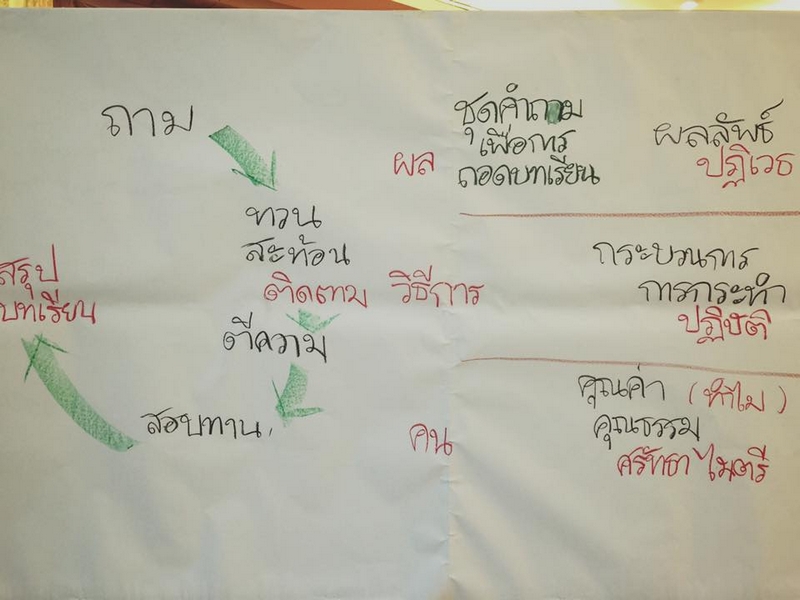 ถาม
ทวน
สะท้อน
ติดตาม
ตีความ
สอบทาน
สรุป
บทเรียน
ชุดคำถาม
เพื่อการ
ถอดบทเรียน
ผล
ผลลัพธ์
ปฏิเวธ
วิธีการ
กระบวนการ
การกระทำ
ปฏิบัติ
คน
คุณค่า (ทำไม)
คุณธรรม
ศรัทธา ไมตรี